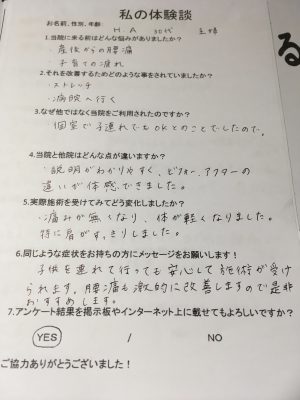 私の体験談
お名前、性別、年齢
H.A 30代 主婦
1.当院に来る前はどんな悩みがありましたか？
・産後からの腰痛
・子育ての疲れ
2.それを改善するためどのような事をされていましたか？
・ストレッチ
・病院へ行く
3.なぜ他ではなく当院をご利用されたのですか？
・個室で子連れでもOKとのことでしたので。
4.当院と他院はどんな点が違いますか？
・説明がわかりやすく、ビフォー、アフターの
違いが体感できました。
5.実際施術を受けてみてどう変化しましたか？
・痛みが無くなり、体が軽くなりました。
特に肩がすっきりしました。
6.同じような症状をお持ちの方にメッセージをお願いします！
子供を連れて行っても安心して施術が受け
られます。腰痛も激的に改善しますので是非
おすすめします。
7.アンケート結果を掲示板やインターネット上に載せてもよろしいですか？
YES / NO
ご協力ありがとうございました！
る